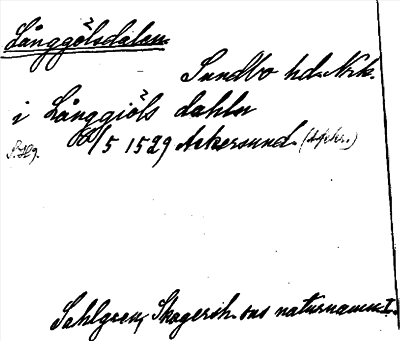 Långgölsdalen
Sundbo hd. Nrk.
i Långgiöls dahln
/5 1529 Askersund. (Afskr.)
Sahlgren, Skagersh. sns naturnamn I.